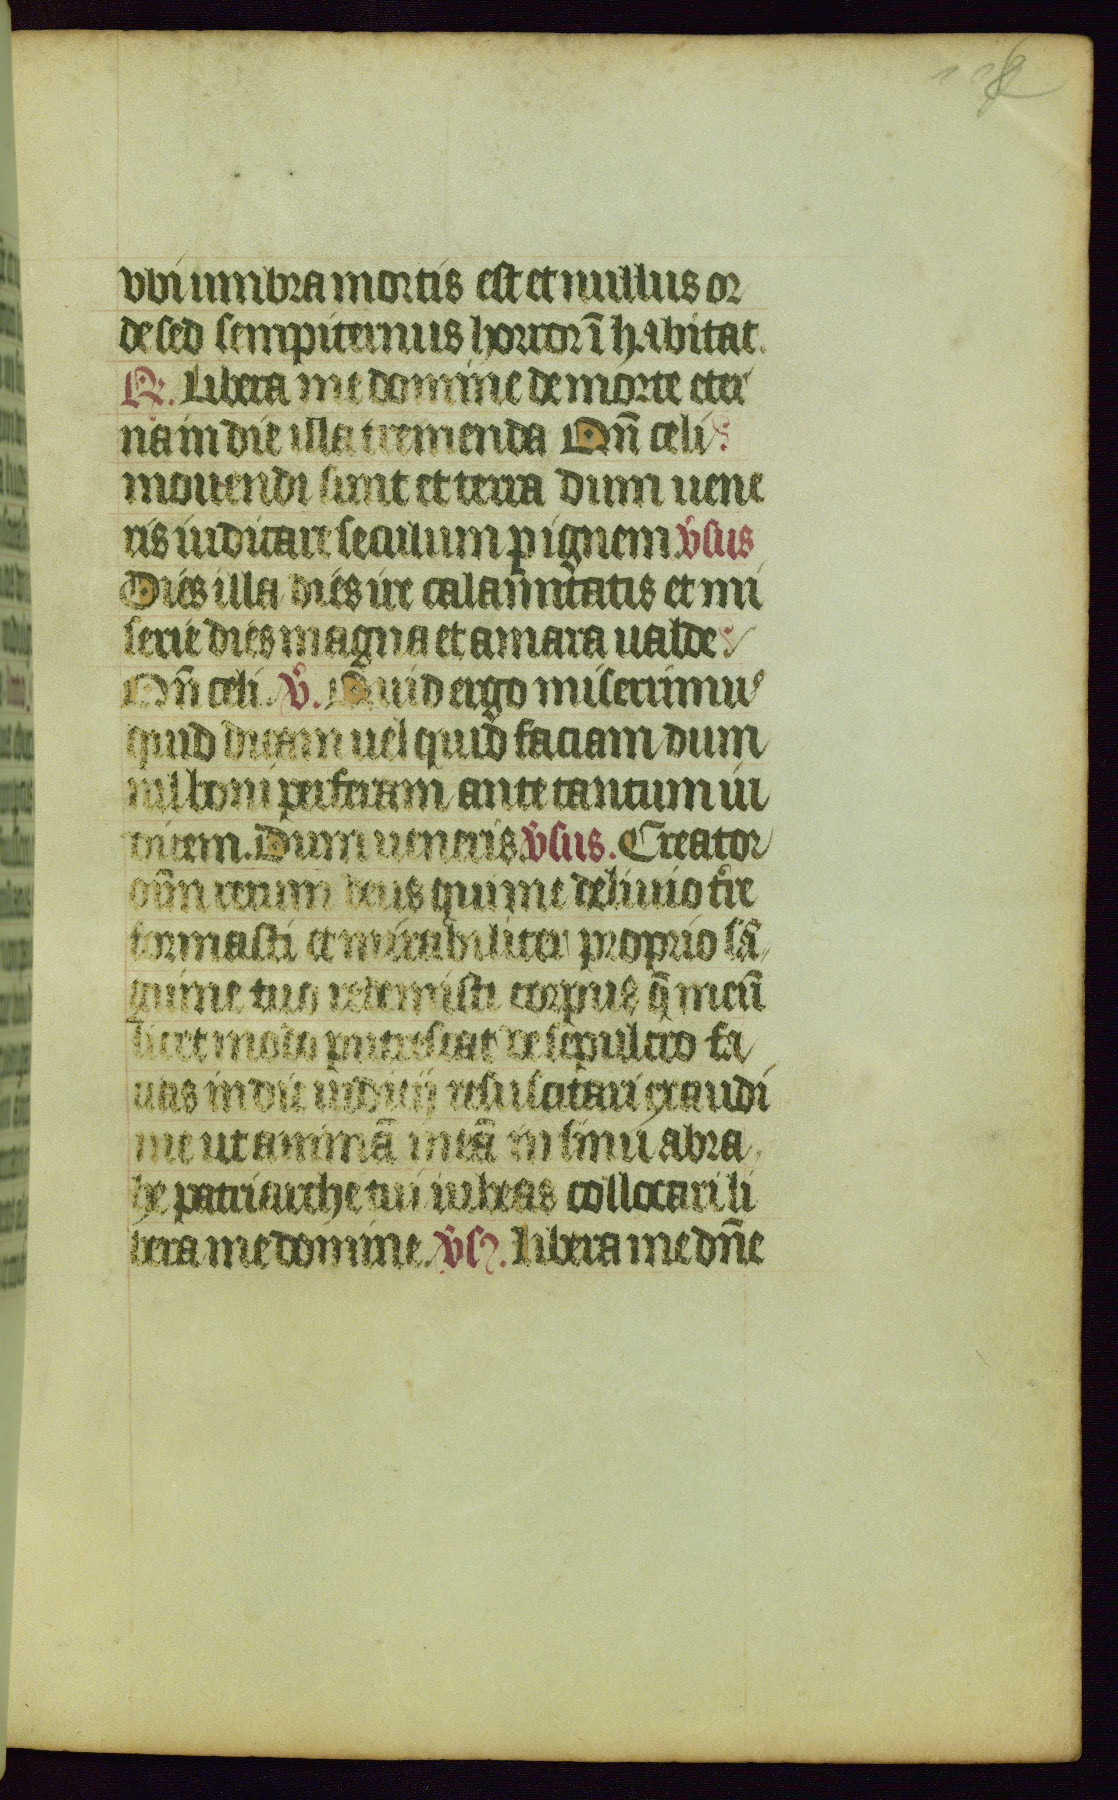 vbi umbra mortis est et nullus or
de sed sempiternus horror ī habitat.
R. Libera me domine de morte eter
na in die illa tremenda Qn̄ celi
mouendi sunt et terra dum uene
ris iudicare seculum p ignem vs̄us
Dies illa dies ire calamitatis et mi
serie dies magna et amara ualde
Qn̄ celi. v̄. Quid ergo miserrimus
quid dicam uel quid faciam dum
nil boni perferam ante tantum iu
dicem. Dum ueneris vs̄us. Creator
om̄n rerum deus qui me de limo tr̄e
formasti et mirabiliter proprio sā
guine tuo redemisti corpus q̄ meū
licet modo putrescat de sepulcro fa
cias in die iudicij resuscitari exaudi
me ut animā meā in sinu abra
he patriarche tui iubeas collocari li
bera me domine. vs̄. Libera me dn̄e